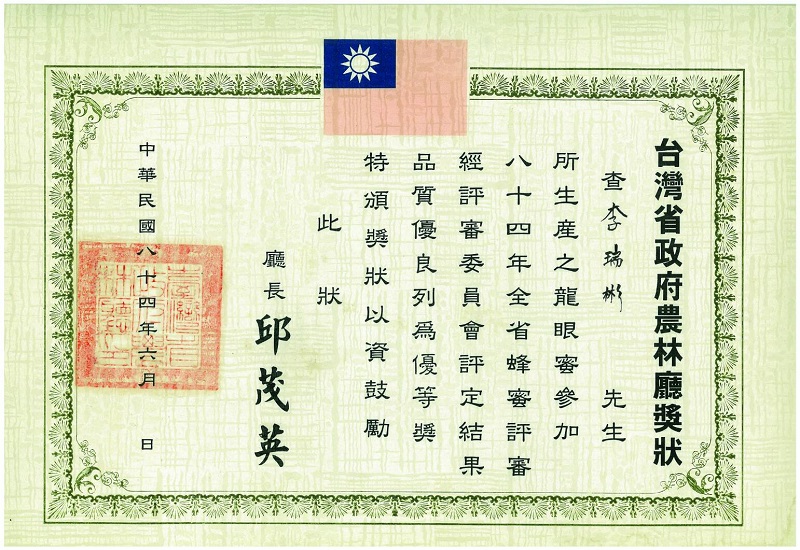 台灣省政府農林廳獎狀
查李瑞彬先生
所生產之龍眼蜜參加
八十四年全省蜂蜜評審
經評審委員會評定結果
品質優良列為優等獎
特頒獎狀以資鼓勵
此狀
廳長邱茂英
中華民國八十四年六月 日